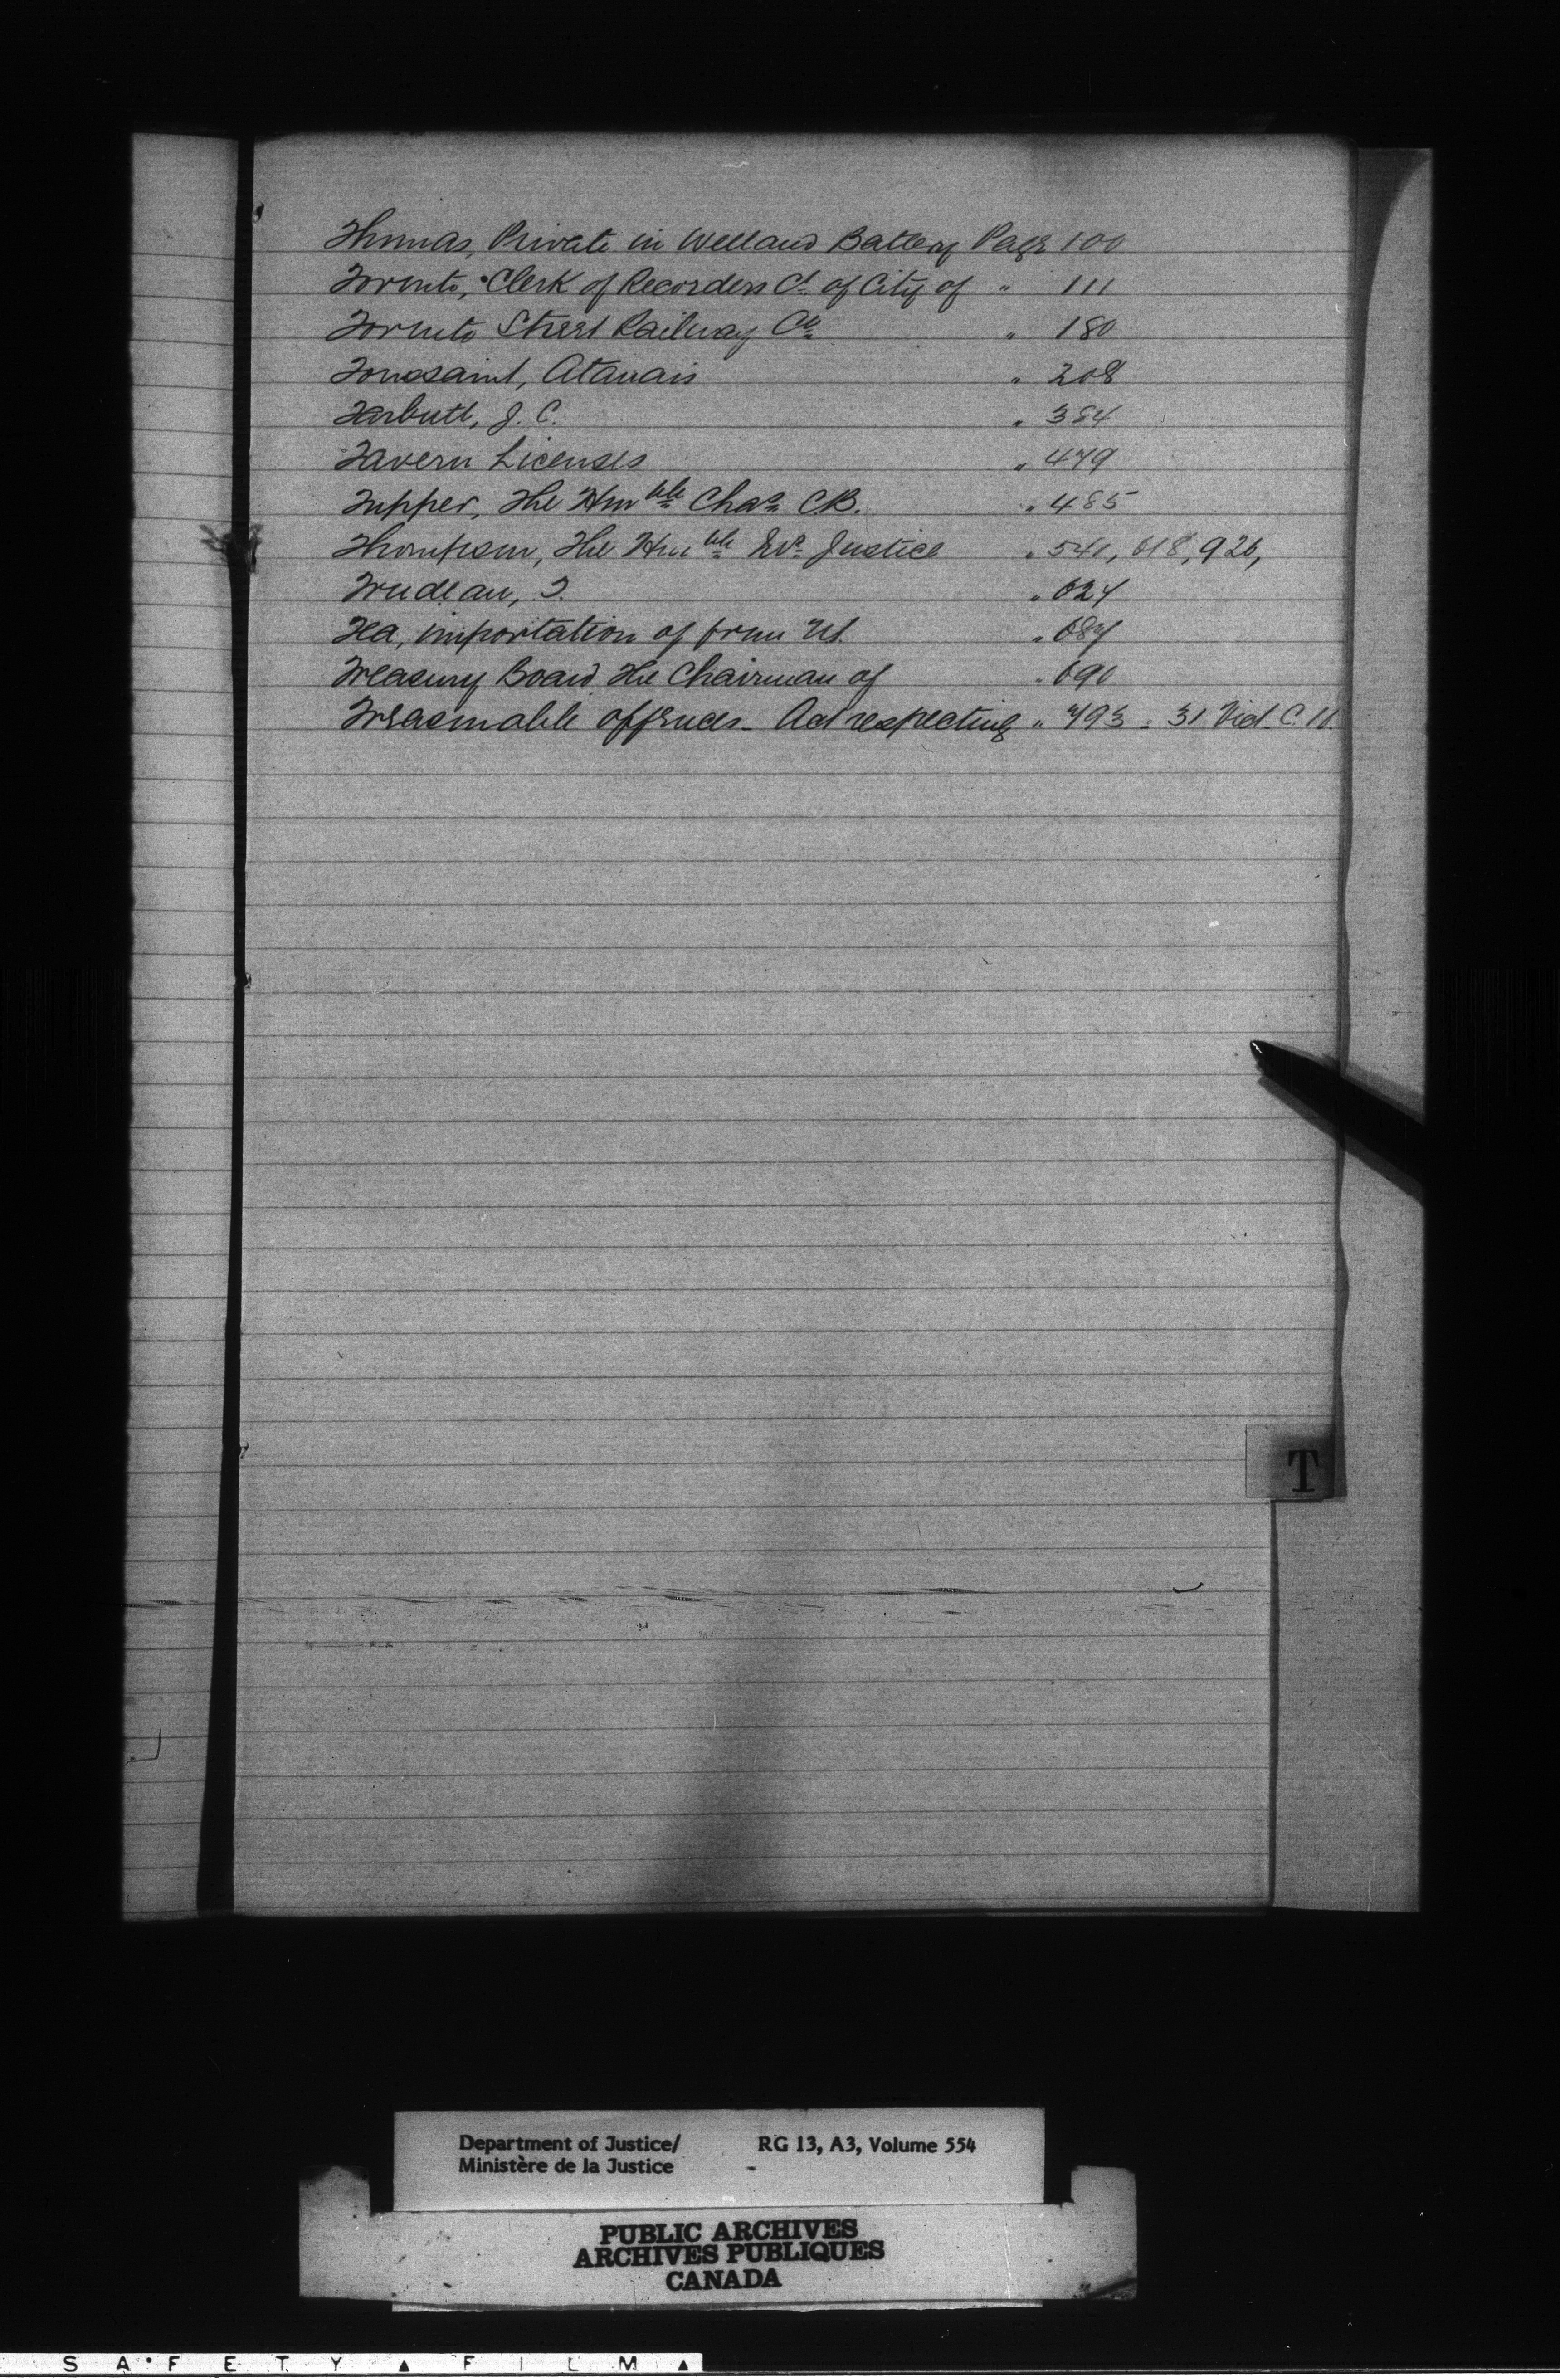 Thomas, Private in Welland Battery Page 100
Toronto, Clerk of Recorders Ct. of City of " 111
Toronto Street Railway Co. " 180
Toussaint, Atanais " 208
Tarbutt, J. C. " 384
Tavern Licenses " 479
Tupper, The Honble Chas. C.B. " 485
Thompson, The Honble Mr. Justice " 541, 618, 926,
Trudeau, T. " 624
Tea, importation of from US. " 687
Treasury Board, The Chairman of " 690
Treasonable offences - Act respecting " 793 - 31 Vict. C.
T
Department of Justice/ RG 13, A3, Volume 554
Ministère de la Justice
PUBLIC ARCHIVES
ARCHIVES PUBLIQUES
CANADA
SAFETY FILM